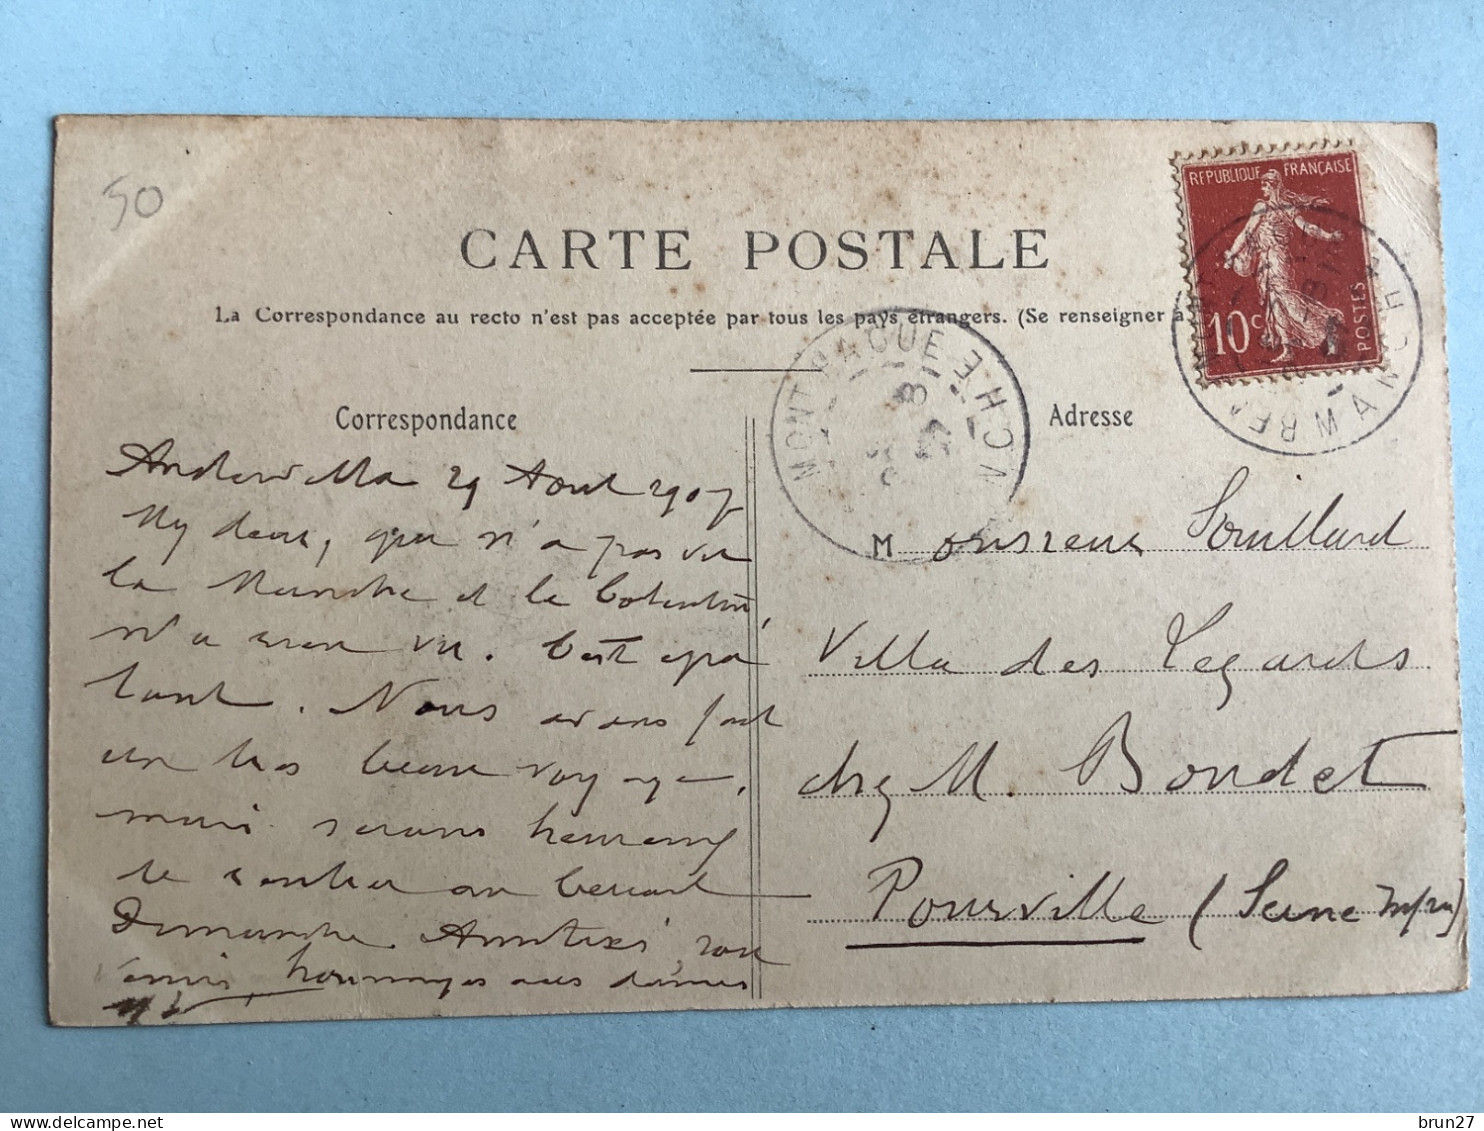 50
CARTE POSTALE
La Correspondance au recto n'est pas acceptée par tous les pays étrangers. (Se renseigner à
REPUBLIQUE FRANÇAISE
10c
POSTES
MONT
MANCHE
Correspondance
Adresse
29 Aout 1907
My dear, qui n'a pas vu
la Manche et le Cotentin,
n'a rien vu. C'est épa
tant. Nous avons fait
un tres beau voyage,
mais serons heureux
de rentrer au bercail
Dimanche. Amitiés,
hommages aux dames
Monsieur Souillard
Villa des
chez M. Boudet
Pourville (Seine Infre)
brun27